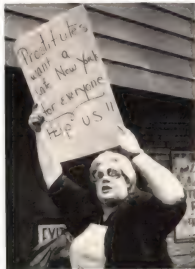 Prostitutes
want a
safe New York
for everyone
Help US !!
EXIT